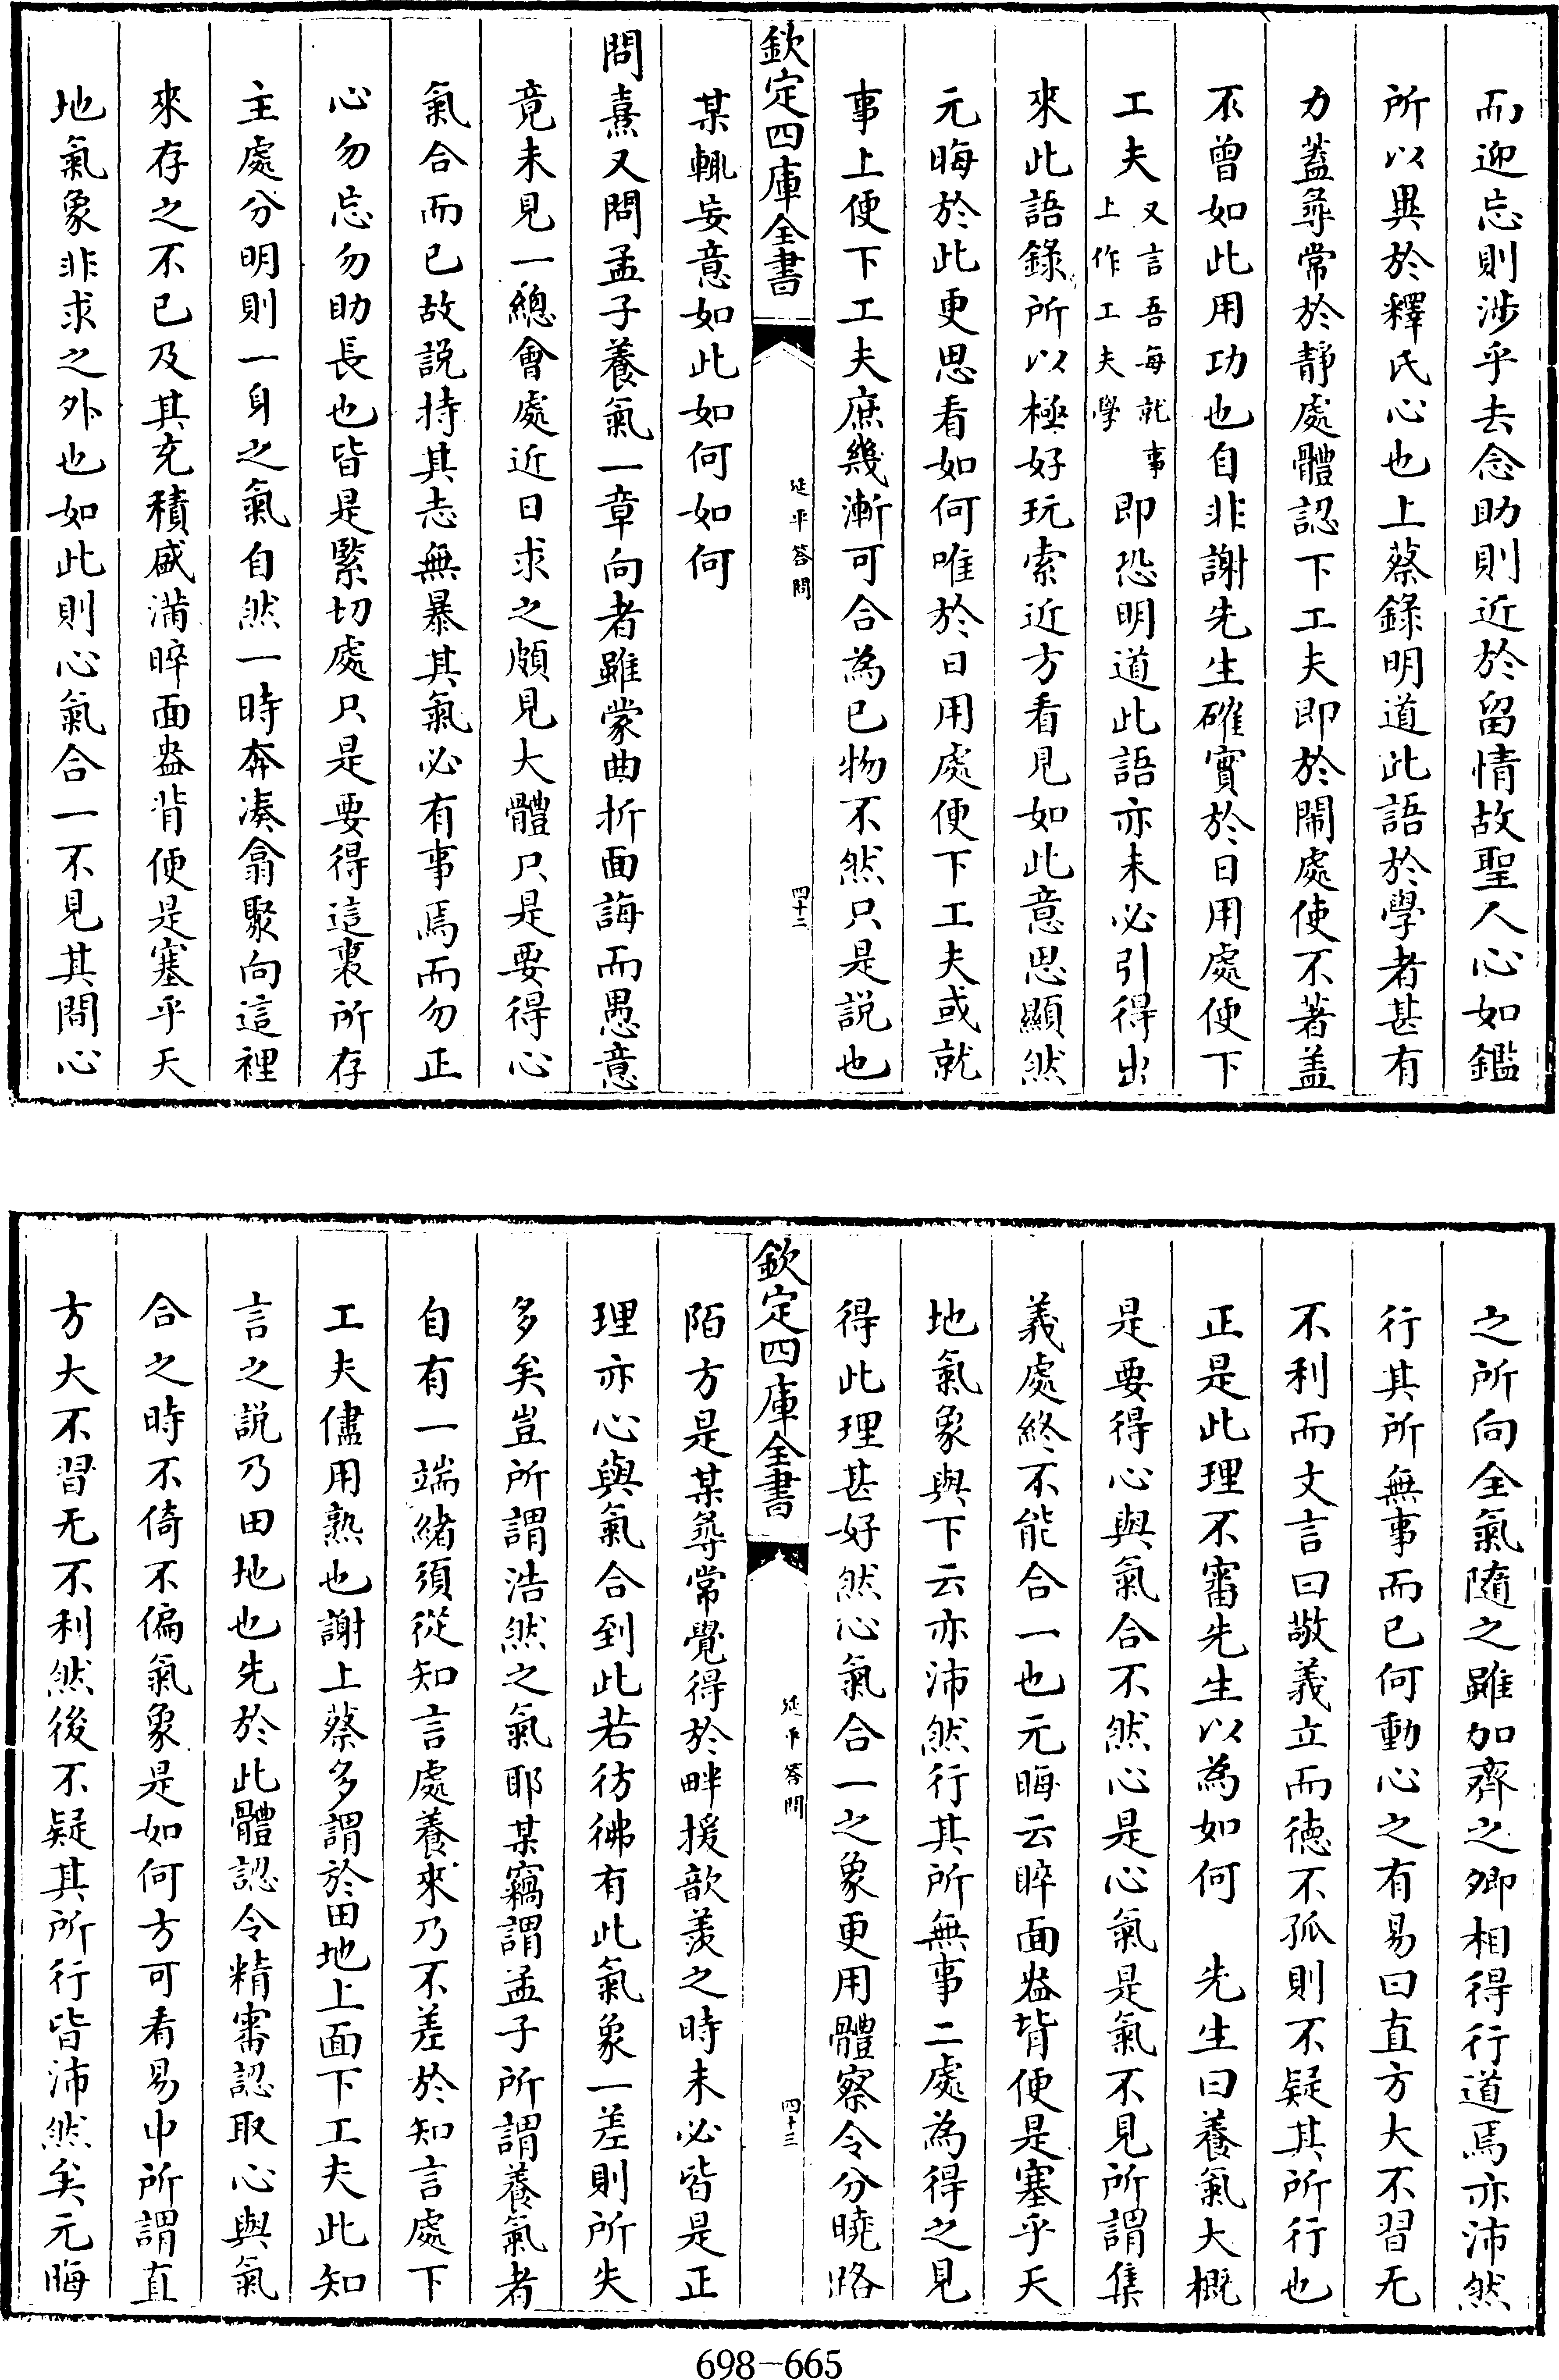 而迎忘則涉乎去念助則近於留情故聖人心如鑑
所以異於釋氏心也上蔡錄明道此語於學者甚有
力蓋尋常於靜處體認下工夫即於閙處使不著盖
不曾如此用功也自非謝先生確實於日用處便下
工夫又言吾每就事上作工夫學即恐明道此語亦未必引得出
來此語錄所以極好玩索近方看見如此意思顯然
元晦於此更思看如何唯於日用處便下工夫或就
事上便下工夫庶幾漸可合為已物不然只是説也
欽定四庫全書
延平答問
四十二
某輒妄意如此如何如何
問熹又問孟子養氣一章向者雖蒙曲折面誨而愚意
竟未見一總會處近日求之頗見大體只是要得心
氣合而已故説持其志無暴其氣必有事焉而勿正
心勿忘勿助長也皆是緊切處只是要得這裏所存
主處分明則一身之氣自然一時奔凑翕聚向這裡
來存之不已及其充積盛滿睟面盎背便是塞乎天
地氣象非求之外也如此則心氣合一不見其間心
之所向全氣隨之雖加齊之卿相得行道焉亦沛然
行其所無事而已何動心之有易曰直方大不習无
不利而文言曰敬義立而徳不孤則不疑其所行也
正是此理不審先生以為如何　先生曰養氣大概
是要得心與氣合不然心是心氣是氣不見所謂集
義處終不能合一也元晦云睟面盎背便是塞乎天
地氣象與下云亦沛然行其所無事二處為得之見
得此理甚好然心氣合一之象更用體察令分曉路
欽定四庫全書
延平答問
四十三
陌方是某尋常覺得於畔援歆羨之時未必皆是正
理亦心與氣合到此若彷彿有此氣象一差則所失
多矣豈所謂浩然之氣耶某竊謂孟子所謂養氣者
自有一端緒須從知言處養來乃不差於知言處下
工夫儘用熟也謝上蔡多謂於田地上面下工夫此知
言之説乃田地也先於此體認令精審認取心與氣
合之時不倚不偏氣象是如何方可看易中所謂直
方大不習无不利然後不疑其所行皆沛然矣元晦
698-665